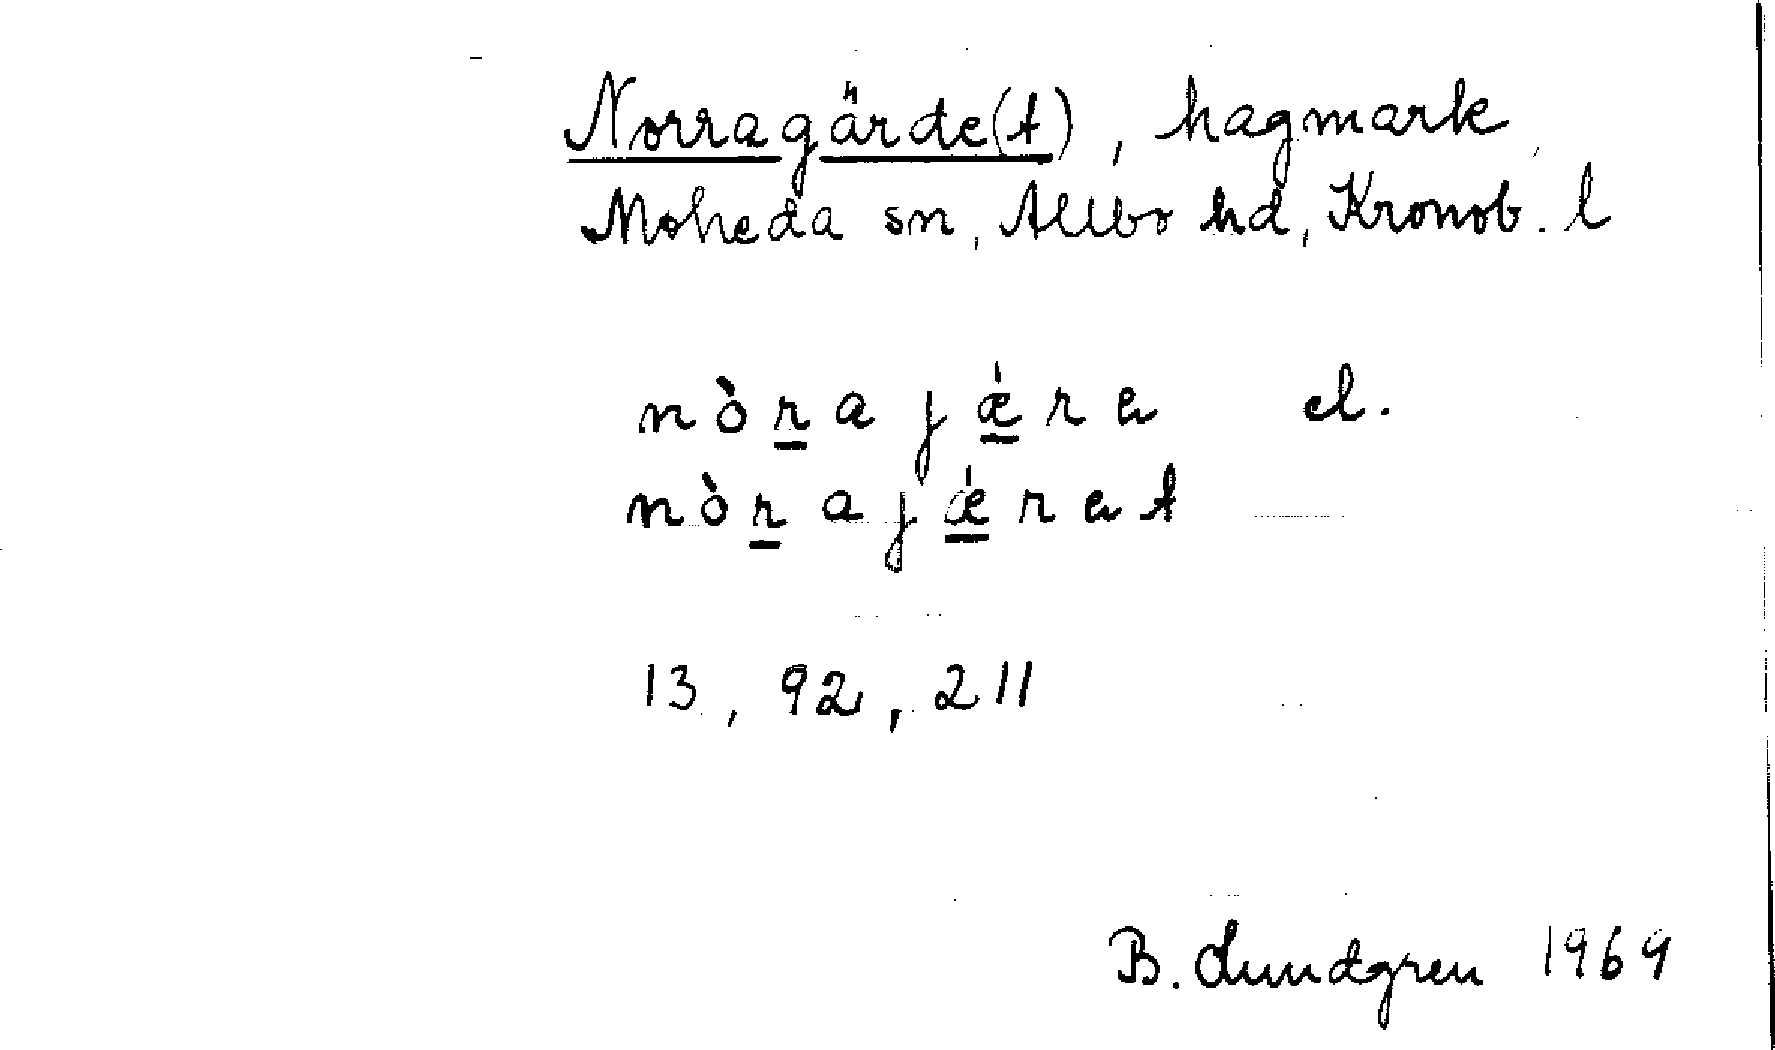 Norragärde(t), hagmark
Moheda sn, Allbo hd, Kronob. l
nòr̲ajǽ̲ra el.
nòr̲ajǽ̲rat
13, 92, 211
B. Lundgren 1969